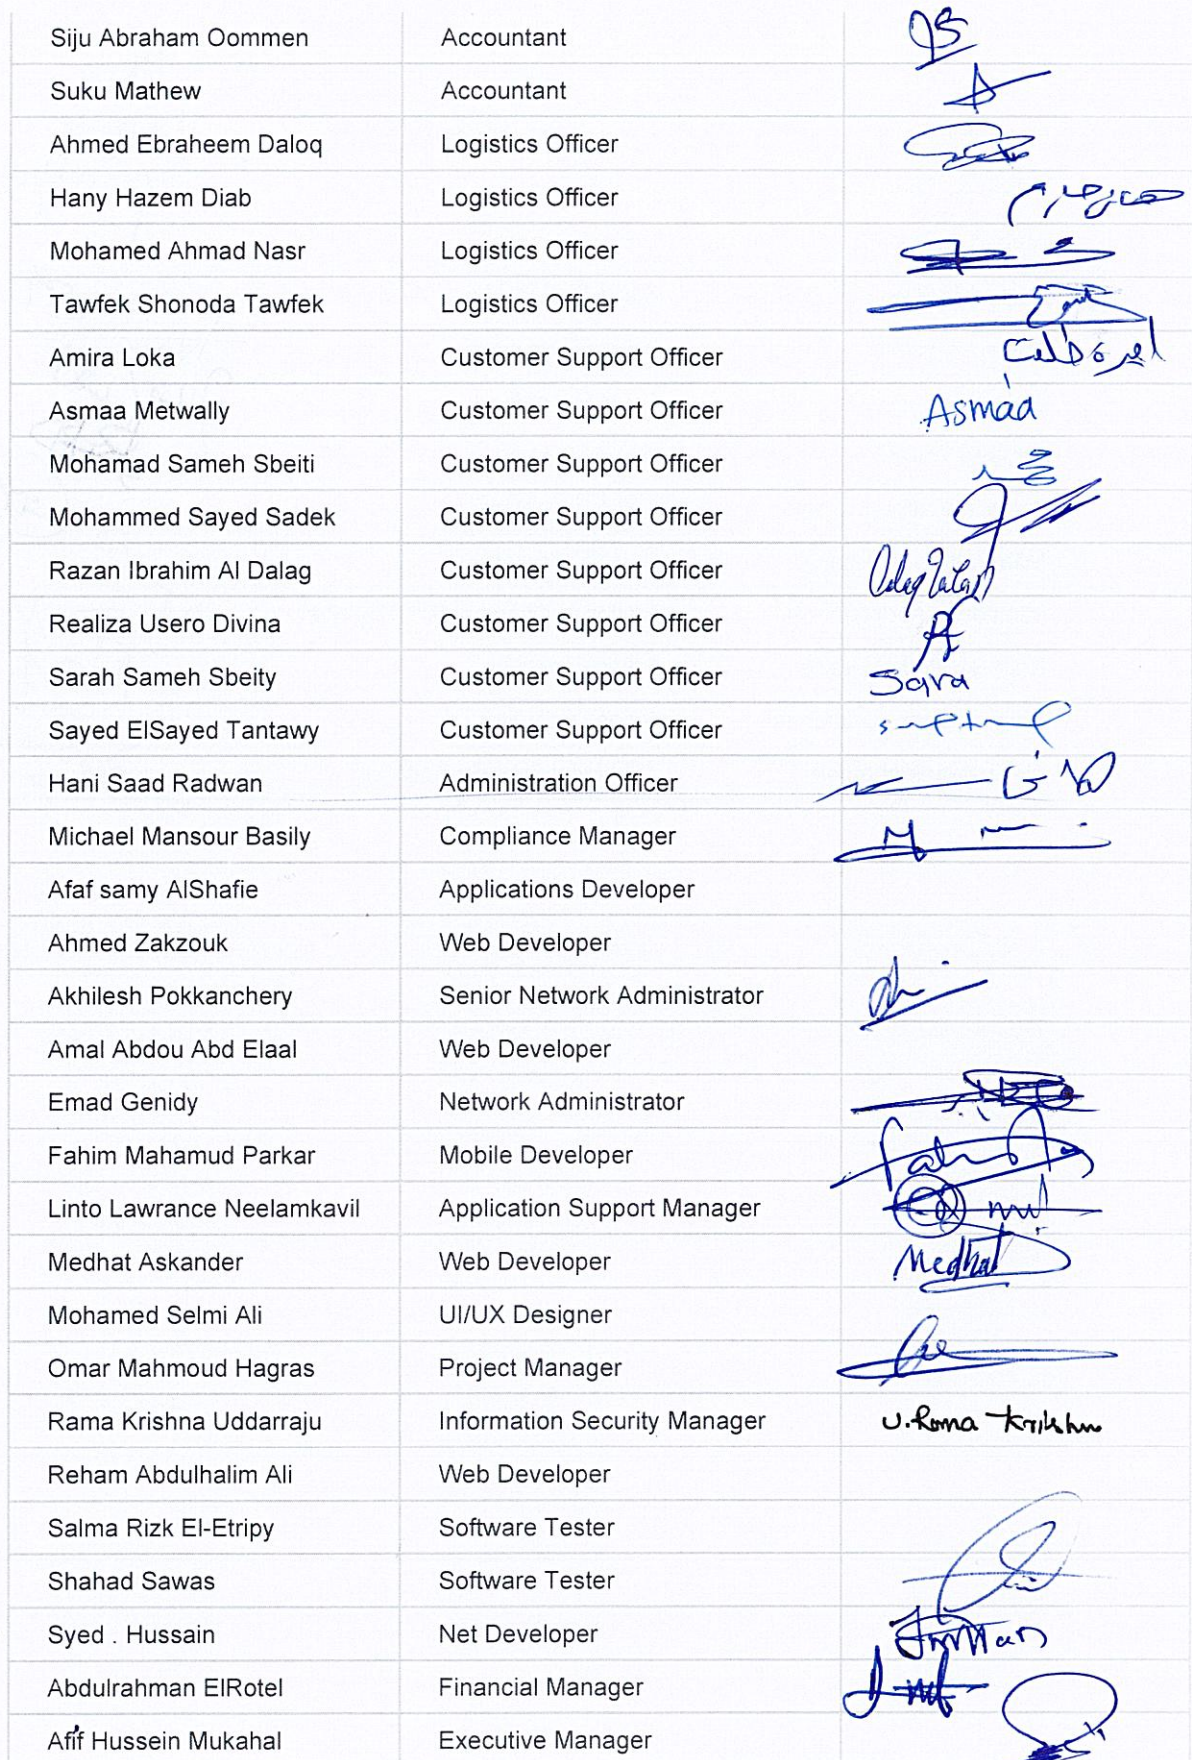 Siju Abraham Oommen Accountant
Suku Mathew Accountant
Ahmed Ebraheem Daloq Logistics Officer
Hany Hazem Diab Logistics Officer
Mohamed Ahmad Nasr Logistics Officer
Tawfek Shonoda Tawfek Logistics Officer
Amira Loka Customer Support Officer
Asmaa Metwally Customer Support Officer Asmaa
Mohamad Sameh Sbeiti Customer Support Officer
Mohammed Sayed Sadek Customer Support Officer
Razan Ibrahim Al Dalag Customer Support Officer
Realiza Usero Divina Customer Support Officer
Sarah Sameh Sbeity Customer Support Officer Sara
Sayed ElSayed Tantawy Customer Support Officer
Hani Saad Radwan Administration Officer
Michael Mansour Basily Compliance Manager
Afaf samy AlShafie Applications Developer
Ahmed Zakzouk Web Developer
Akhilesh Pokkanchery Senior Network Administrator
Amal Abdou Abd Elaal Web Developer
Emad Genidy Network Administrator
Fahim Mahamud Parkar Mobile Developer
Linto Lawrance Neelamkavil Application Support Manager
Medhat Askander Web Developer Medhat
Mohamed Selmi Ali UI/UX Designer
Omar Mahmoud Hagras Project Manager
Rama Krishna Uddarraju Information Security Manager U. Rama Krishna
Reham Abdulhalim Ali Web Developer
Salma Rizk El-Etripy Software Tester
Shahad Sawas Software Tester
Syed . Hussain Net Developer
Abdulrahman ElRotel Financial Manager
Afif Hussein Mukahal Executive Manager